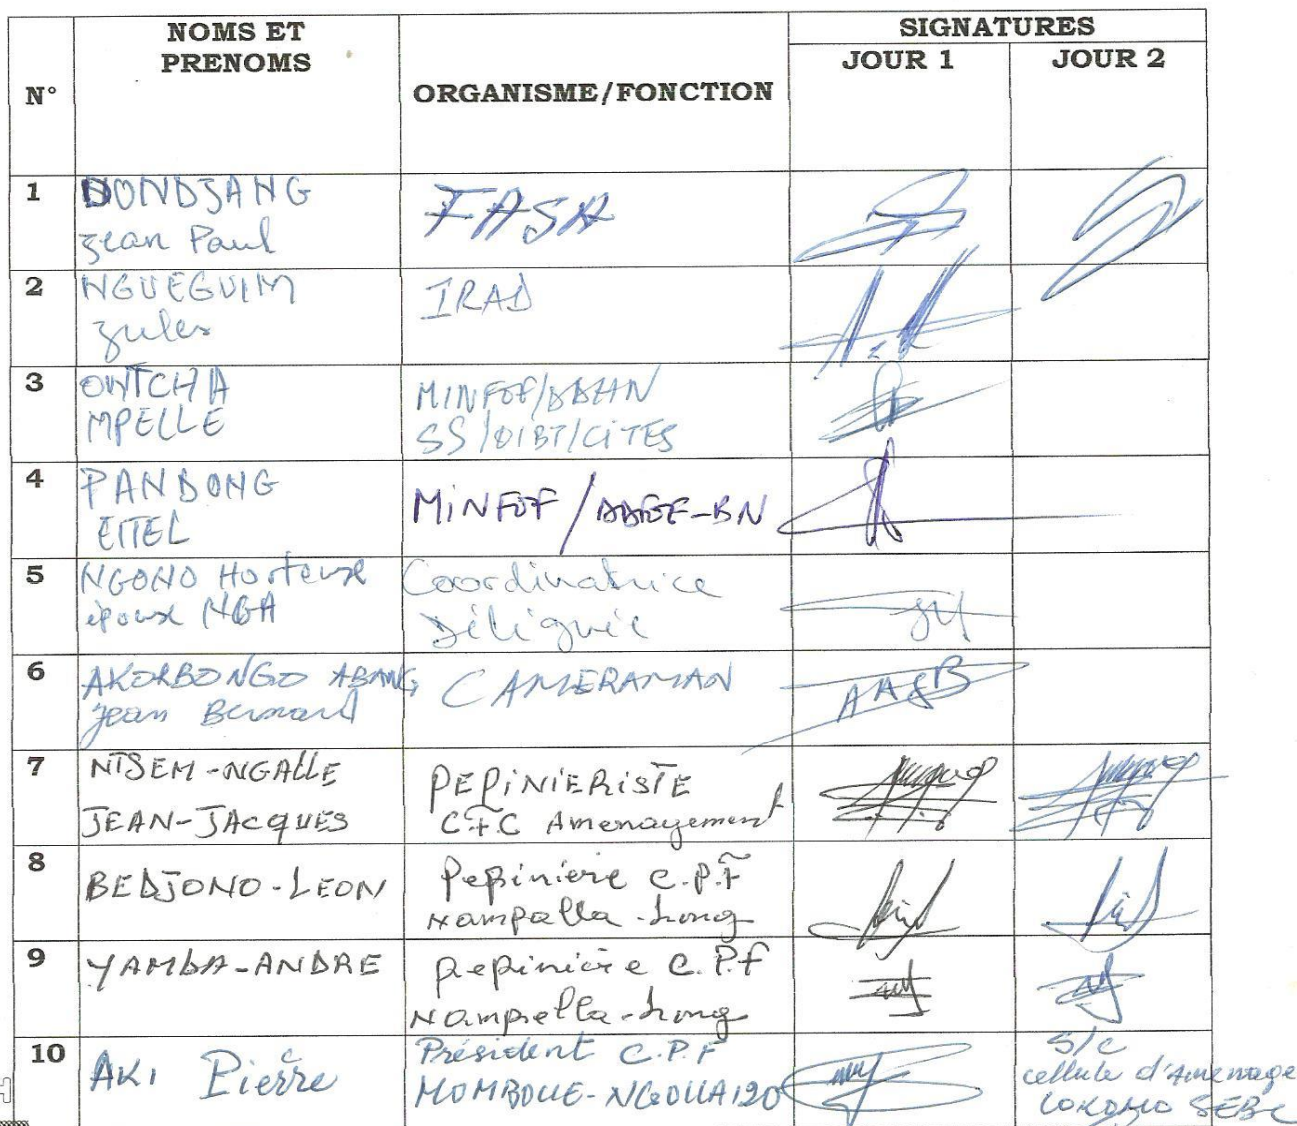 NOMS ET
PRENOMS
SIGNATURES
N°
ORGANISME/FONCTION
JOUR 1
JOUR 2
1
DONDJANG
Jean Paul
FASA
2
NGUEGUIM
Jules
IRAD
3
OWTCHA
MPELLE
MINFOF/
SS/OIBT/CITES
4
PANDONG
EITEL
MINFOF /
5
NGONO Hortense
épouse NGA
Coordinatrice
Déléguée
6
AKORBONGO ABANG
Jean Bernard
CAMERAMAN
AAJB
7
NTSEM-NGALLE
JEAN-JACQUES
PEPINIERISTE
CFC Amenagement
8
BEDJONO-LEON
Pepiniere C.P.F
Nampella-
9
YAMBA-ANDRE
Pepiniere C.P.f
Nampella-
10
AKI Pierre
Président C.P.F
MOMBOUE-NGOLLA 120
S/C
cellule d'Amenage
LOKOMO SEBC